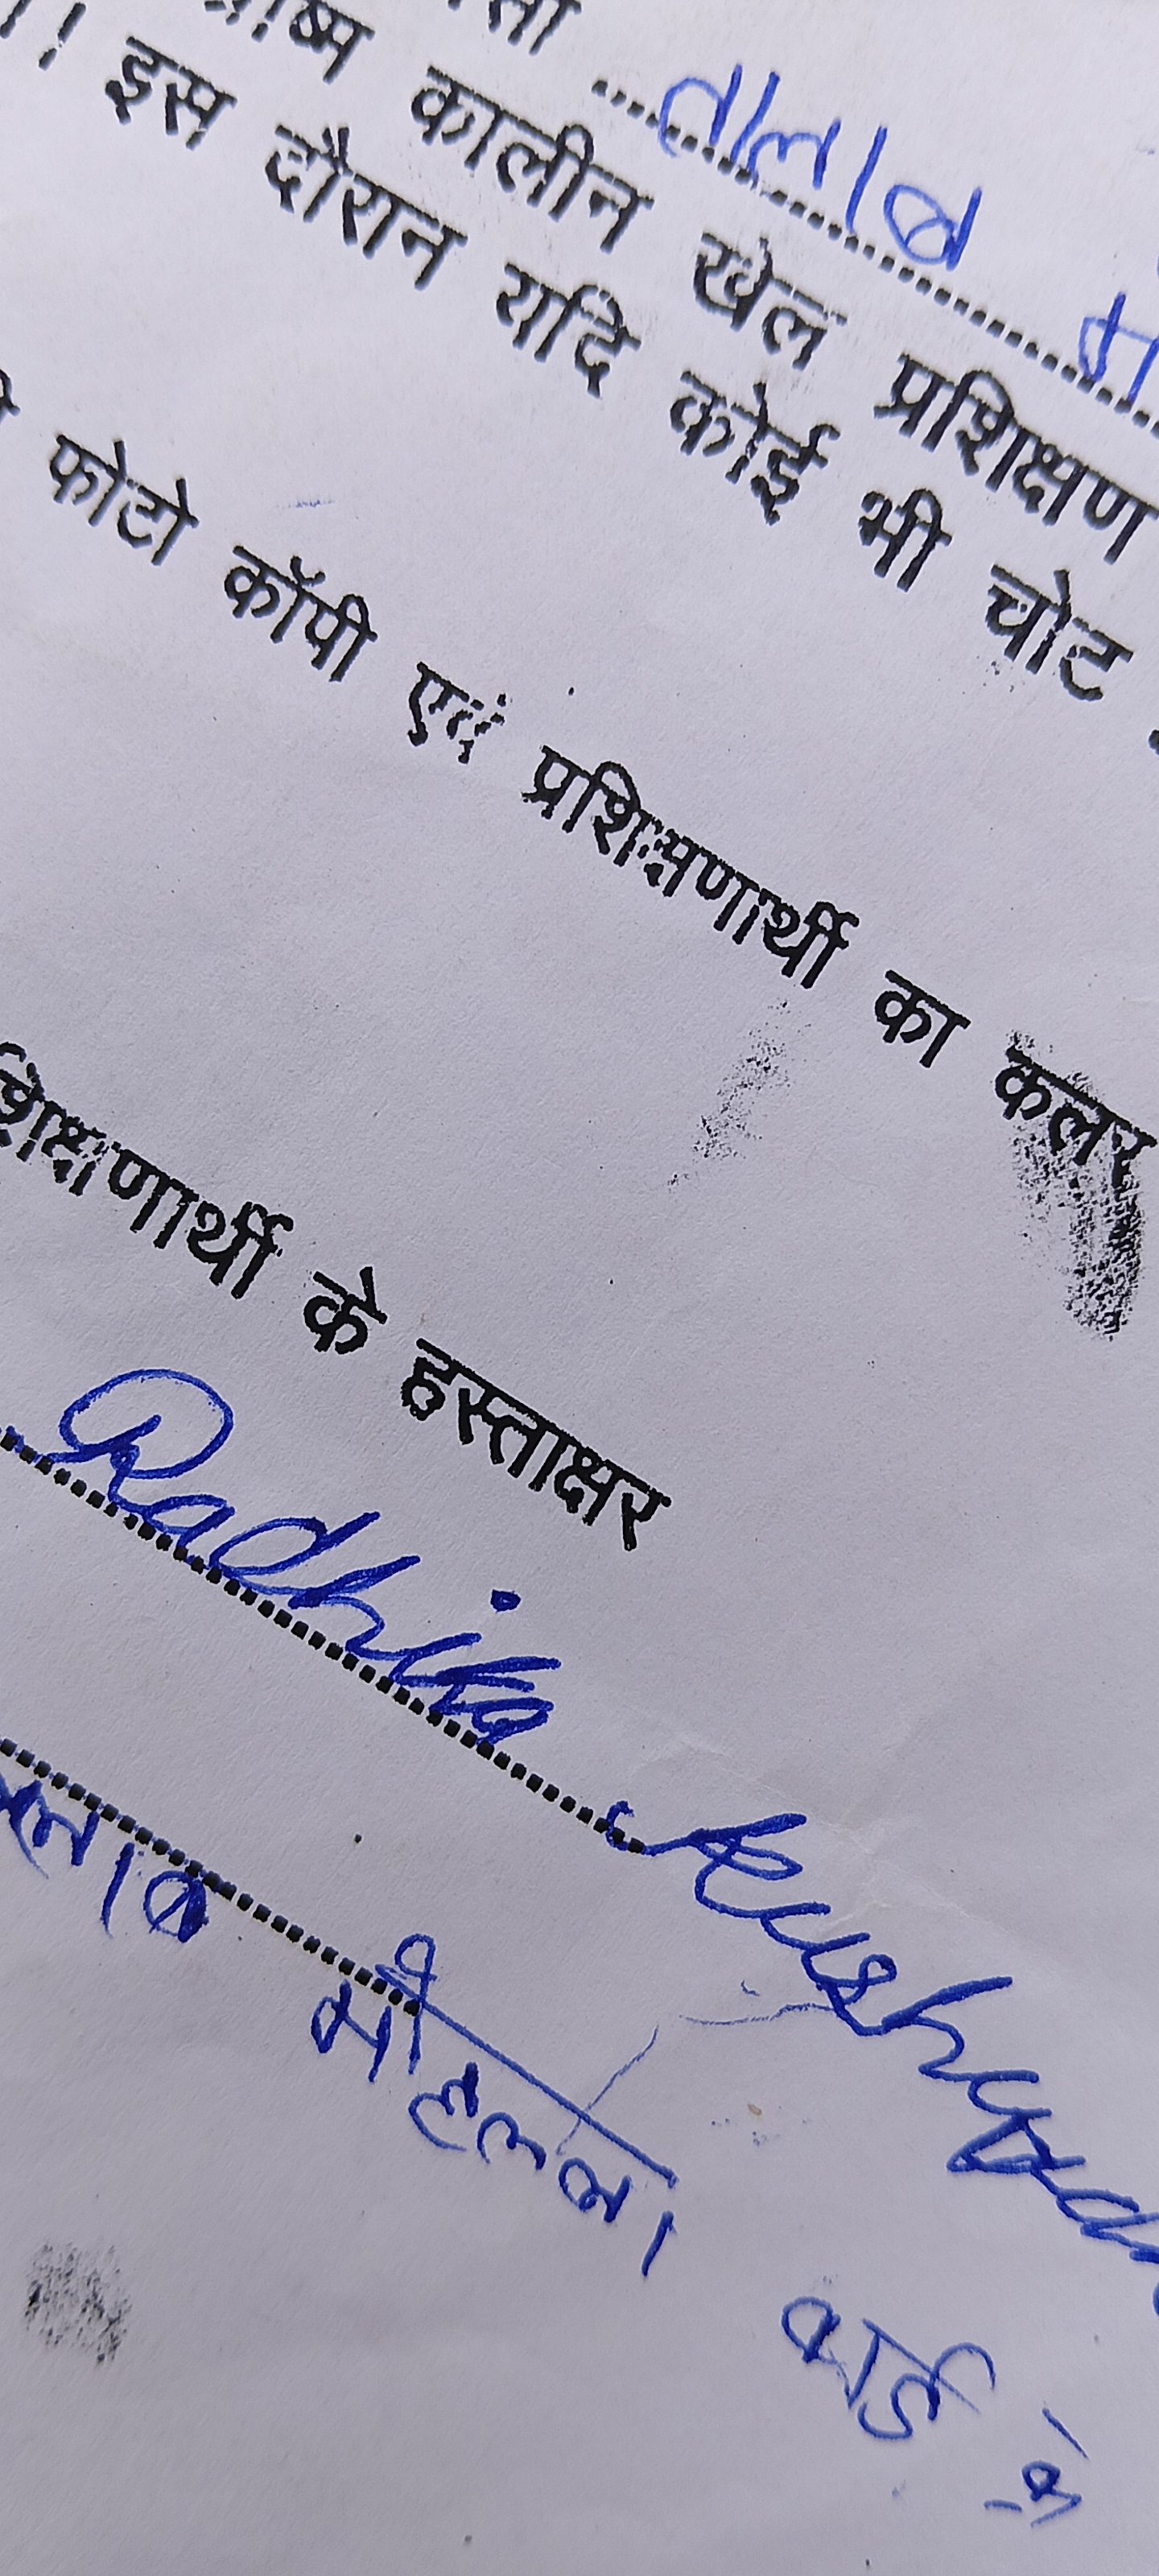 तालाब
ग्रीष्म कालीन खेल प्रशिक्षण
। इस दौरान यदि कोई भी चोट
फोटो कॉपी एवं प्रशिक्षणार्थी का कलर
प्रशिक्षणार्थी के हस्ताक्षर
Radhika Kushwah
तालाब मौहल्ला वार्ड